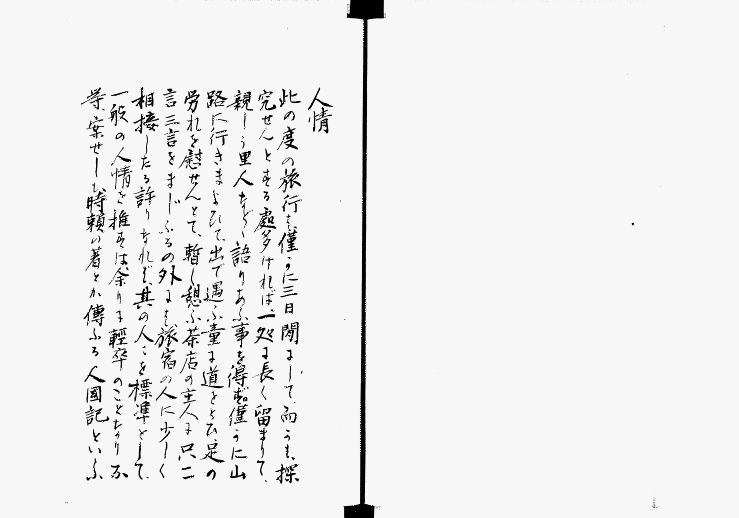 人情
此の度の旅行は、僅かに三日間にして、而かも、探
究せんとする處多ければ、一処に長く留まりて、
親しく里人などゝ語りあふ事を得ず。僅かに山
路に行きまよひて、出で遇ふ童に道をとひ、足の
労れを慰せんとて、暫し憩ふ茶店の主人に只二
言三言をまじふるの外には、旅宿の人に少しく
相接したる許りなれば、其の人々を標準として、
一般の人情を推すは、余りに輕卒のことなり。
案せしも、時頼の著とか傳ふる人國記といふ